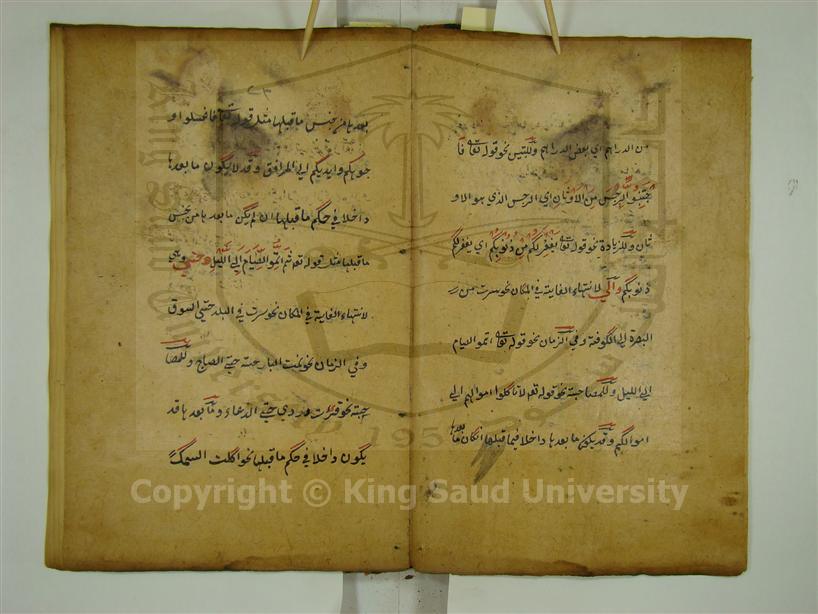 من الدراهم اي بعض الدراهم وللتبيين نحو قوله تعالى فا
جتنبوا الرجس من الاوثان اي الرجس الذي هو الاو
ثان وللزيادة نحو قوله تعالى يغفر لكم من ذنوبكم اي يغفر لكم
ذنوبكم والى لانتهاء الغاية في المكان نحو سرت من
البصرة الى الكوفة وفي الزمان نحو قوله تعالى اتموا الصيام
الى الليل وللمصاحبة نحو قوله تعم لا تاكلوا اموالهم الى
اموالكم وقد يكون ما بعدها داخلا فيما قبلها ان كان ما بعدها
بعدها من جنس ما قبلها مثل قوله تعالى فاغسلوا و
جوهكم وايديكم الى المرافق وقد لا يكون ما بعدها
داخلا في حكم ما قبلها ان لم يكن ما بعدها من جنس
ما قبلها مثل قوله تعم ثم اتموا الصيام الى الليل وحتى وهي
لانتهاء الغاية في المكان نحو سرت في البلد حتى السوق
وفي الزمان نحو نمت البارحة حتى الصباح وللمصا
حبة نحو قرأت وردي حتى الدعاء وما بعدها قد
يكون داخلا في حكم ما قبلها نحو اكلت السمكة
Copyright © King Saud University